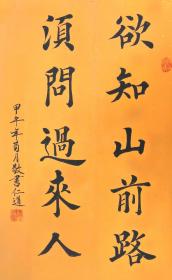 欲知山前路
須問過來人
甲午年荀月敬書仁道